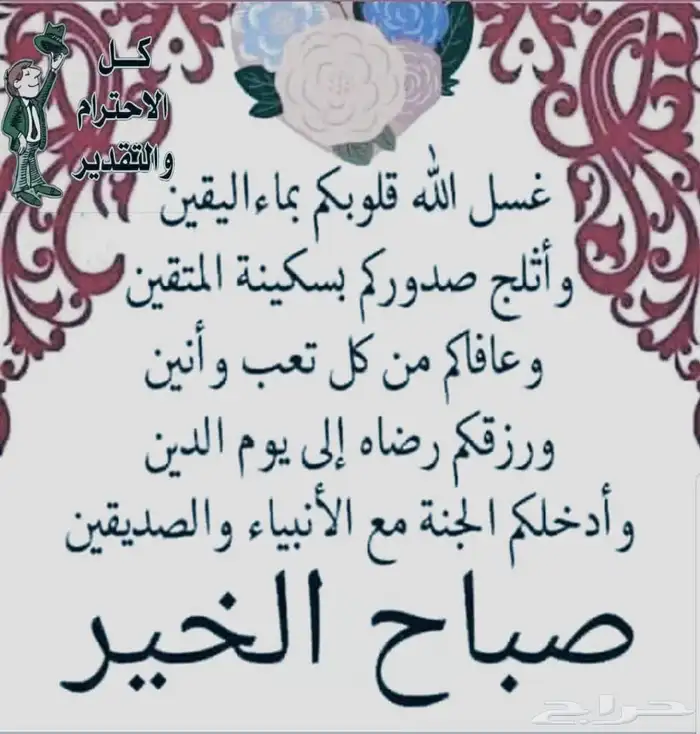 كل
الاحترام
والتقدير
غسل الله قلوبكم بماء اليقين
وأثلج صدوركم بسكينة المتقين
وعافاكم من كل تعب وأنين
ورزقكم رضاه إلى يوم الدين
وأدخلكم الجنة مع الأنبياء والصديقين
صباح الخير
حراج